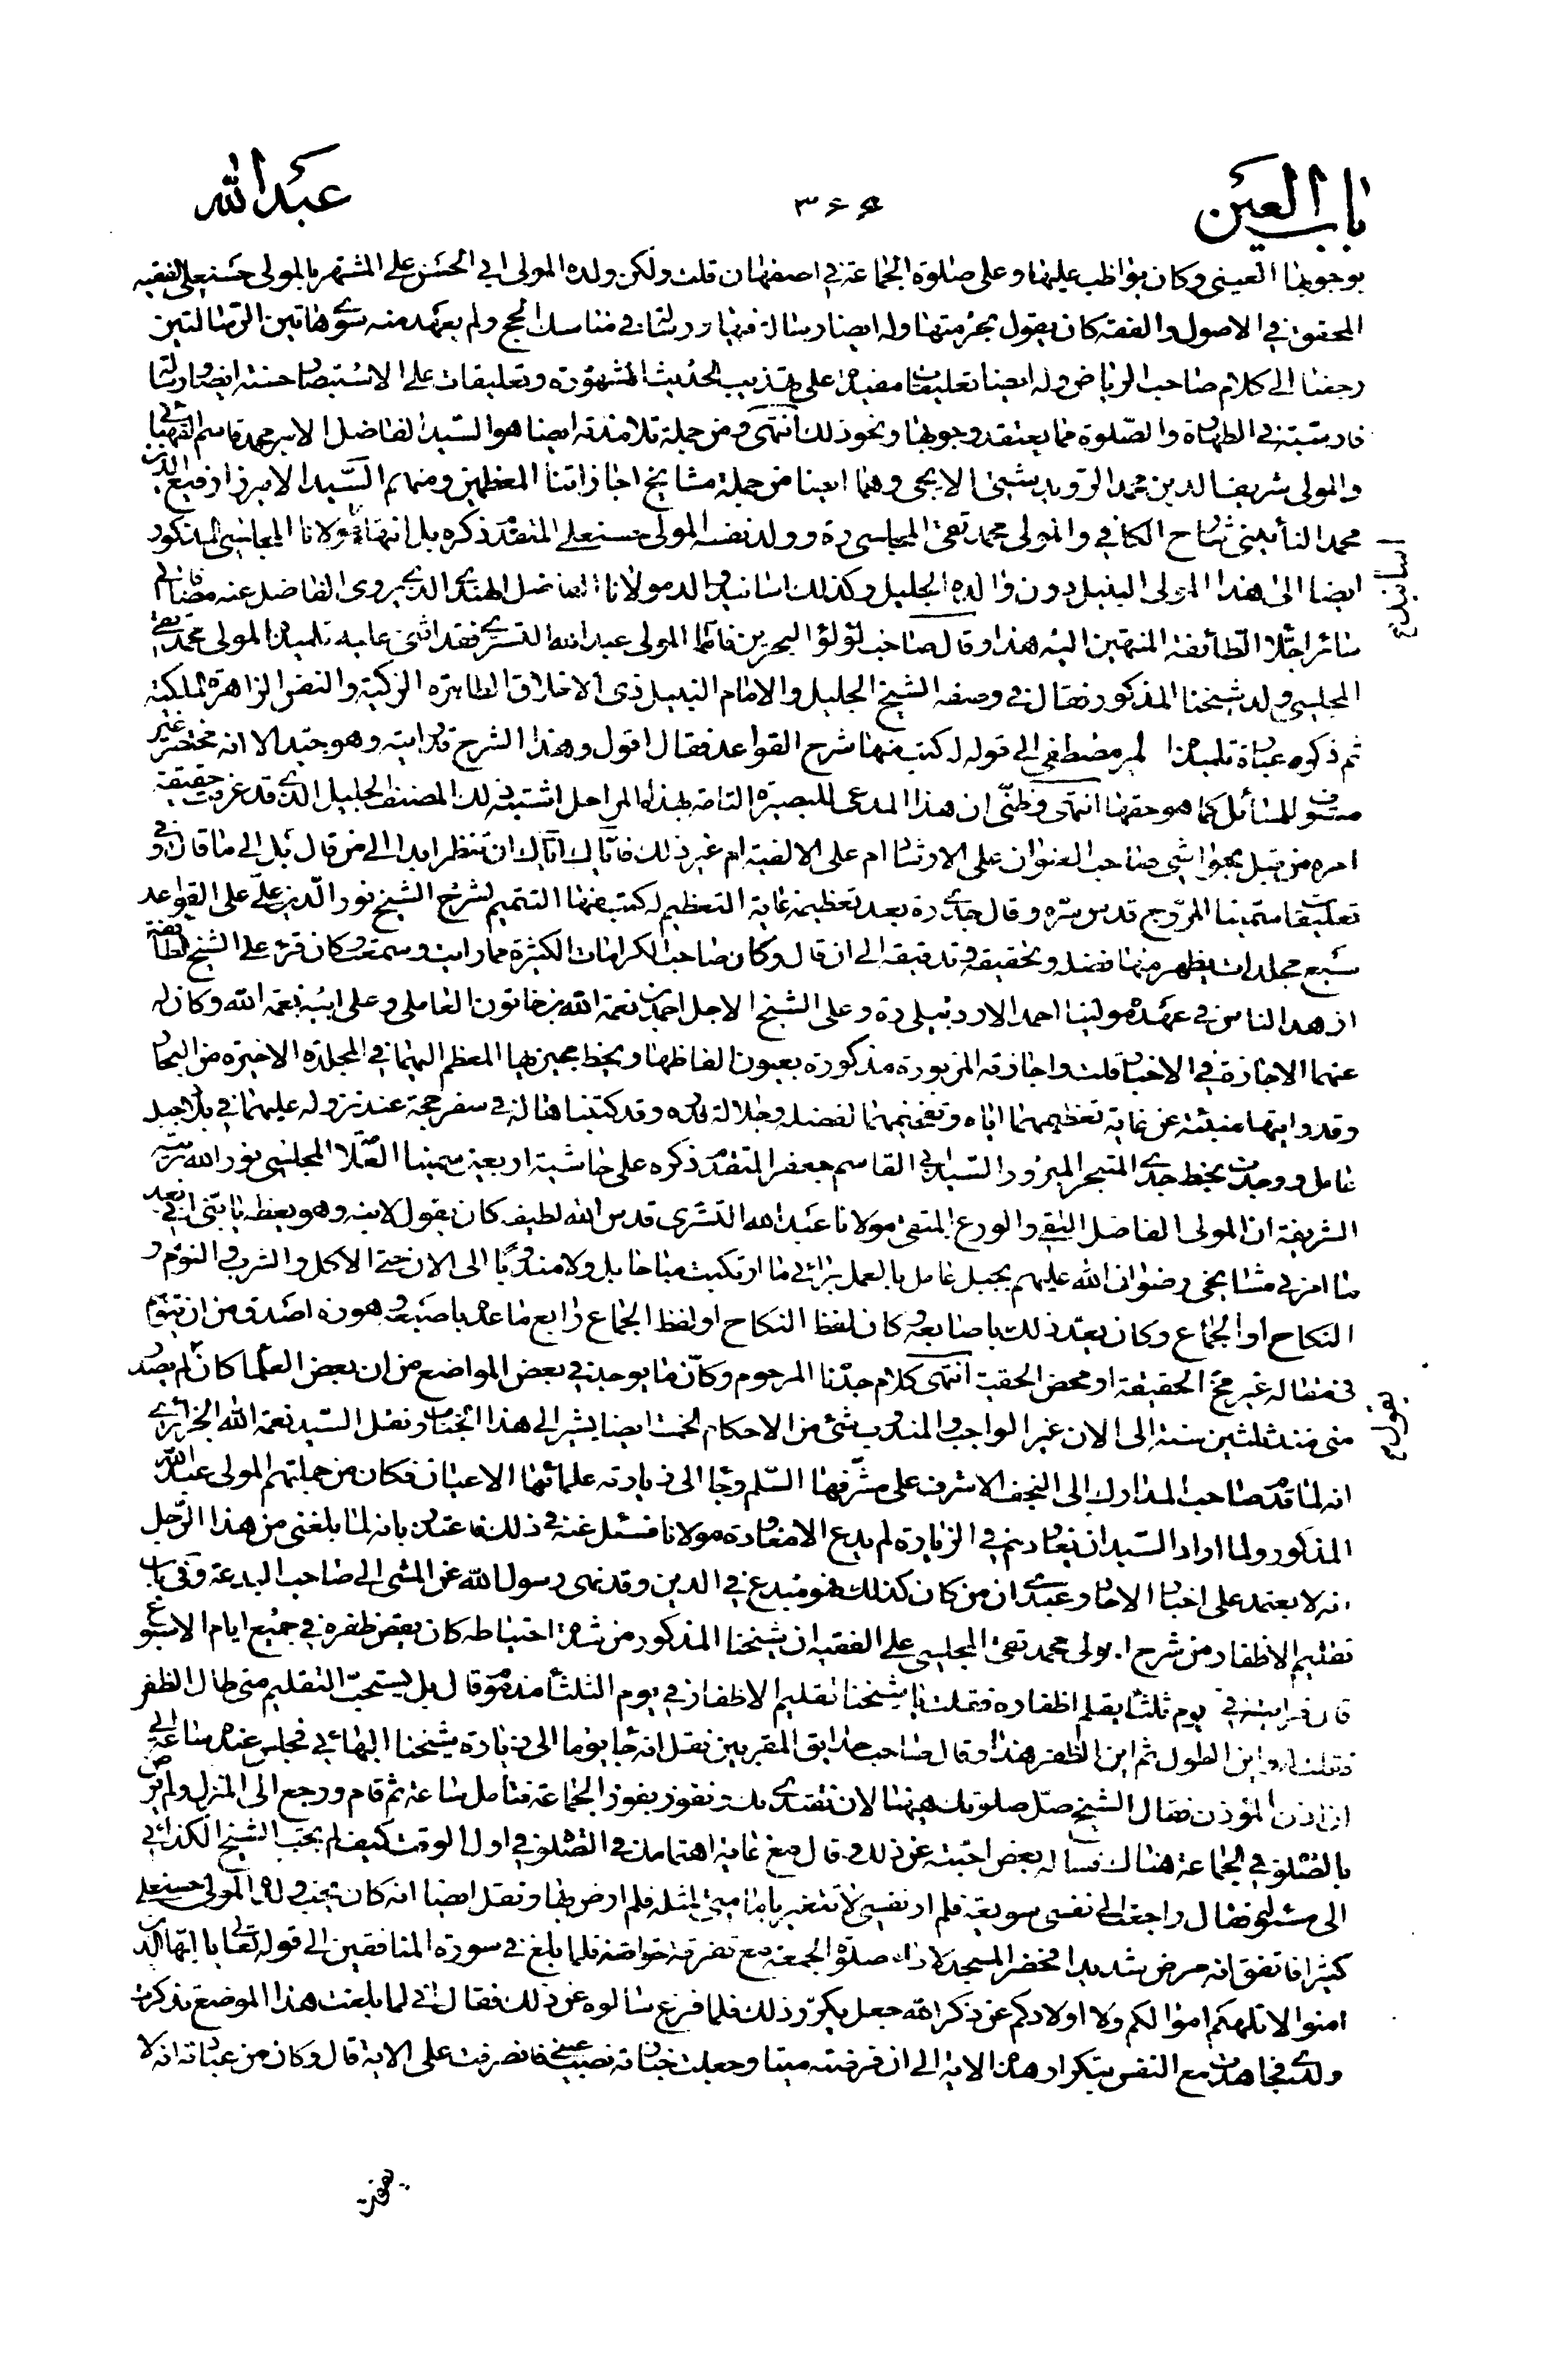 باب العين
۳۶۵
عبد الله
بوجوبها العينى وكان يواظب عليها وعلى صلوة الجماعة فى اصفهان قلت ولكن ولده المولى ابى الحسن على المشتهر بالمولى حسنعلى الفقيه
المحقق فى الاصول والفقه كان يقول بحرمتها وله ايضا رسالة فيها ورسالة فى مناسك الحج ولم يعهد منه سوى هاتين الرسالتين
رجعنا الى كلام صاحب الرياض وله ايضا تعليقات مفيدة على تهذيب الحديث المشهورة وتعليقات على الاستبصار حسنة ايضا ورسالة
فارسيّة فى الطهارة والصّلوة مما يعتقد وجوبها ونحو ذلك انتهى ومن جملة تلامذته ايضا هو السّيد الفاضل الامير محمد قاسم القهپائى
والمولى شريف الدين محمد الرويدشتى الايجى وهما ايضا من جملة مشايخ اجازاتنا المعظمين ومنهم السّيد الاميرزا رفيع الدين
محمد النائينى شارح الكافى والمولى محمد تقى المجلسى ره وولد نفسه المولى حسنعلى المتقدّم ذكره بل انتهاء مولانا المجلسى المذكور
اسانيد
ايضا الى هذا المولى النبيل دون والده الجليل وكذلك اسانيد والد مولانا الفاضل الهندى الذى يروى الفاضل عنه مضافا الى
سائر اجلاء الطّائفة المنتهين اليه هذا وقال صاحب لؤلؤ البحرين فامّا المولى عبد الله التسترى فقد اثنى عليه تلميذه المولى محمد تقى
المجلسى والد شيخنا المذكور فقال فى وصفه الشيخ الجليل والامام النبيل ذى الاخلاق الطاهرة الزكيّة والنفس الزاهرة الملكية
ثم ذكره عبارة تلميذه المير مصطفى الى قوله له كتب منها شرح القواعد فقال اقول وهذا الشرح قد رايته وهو جيّد الا انه مختصر غير
مستوف للمسائل كما هو حقها انتهى وظنّى ان هذا المدعى للبصيرة التامة بهذه المراحل اشتبه ذلك المصنف الجليل الذى قد عرفت حقيقة
امره من قبل بحواشى صاحب العنوان على الارشاد ام على الالفية ام غير ذلك فايّاك ايّاك ان تنظر ابدا الى من قال بل الى ما قال وفى
تعليقات سميّنا المروّج قدس سره وقال جدّى ره بعد تعظيمه غاية التعظيم له كتب منها التتميم لشرح الشيخ نور الدين علىّ على القواعد
سبع مجلدات يظهر منها فضله وتحقيقه وتدقيقه الى ان قال وكان صاحب الكرامات الكثيرة مما رايت وسمعت وكان قرء على الشيخ الطائفة
ازهد الناس فى عهده مولينا احمد الاردبيلى ره وعلى الشيخ الاجل احمد بن نعمة الله بن خاتون العاملى وعلى ابيه نعمة الله وكان له
عنهما الاجازة فى الاخبار قلت واجازته المزبورة مذكورة بعيون الفاظها وبخط مجيزيها المعظم اليهما فى المجلدة الاخيرة من البحار
وقد رايتها منبئة عن غاية تعظيمهما اياه وتفخيمهما لفضله وجلالة قدره وقد كتبناها له فى سفر حجة عند نزوله عليهما فى بلاد جبل
عامل ووجدت بخط جدّى المتبحر المبرور السّيد ابى القاسم جعفر المتقدّم ذكره على حاشية اربعين سمينا العلّامة المجلسى نور الله تربته
الشريفة ان المولى الفاضل التقى والورع المتقى مولانا عبد الله التسترى قدس الله لطيفه كان يقول لابنه وهو يعظه يا بنىّ انى بعد
ما امرنى مشايخى رضوان الله عليهم بجبل عامل بالعمل برائى ما ارتكبت مباحا بل ولا مندوبا الى الان حتى الاكل والشرب والنوم و
النكاح او الجماع وكان يعدّ ذلك باصابعه وكان لفظ النكاح او لفظ الجماع رابع ما عده باصبعه وهو ره اصدق من ان يتوهم
فى مقاله غير مخ الحقيقة او محض الحقيّة انتهى كلام جدّنا المرحوم وكانّ ما يوجد فى بعض المواضع من ان بعض العلماء كان لم يصدر
منى منذ ثلثين سنة الى الان غير الواجب والمندوب شئ من الاحكام الخمسة ايضا يشير الى هذا الجناب ونقل السّيد نعمة الله الجزائرى
يقول
انه لما قدم صاحب المدارك الى النجف الاشرف على مشرّفها السّلم وجا الى زيارته علمائها الاعيان فكان من جملتهم المولى عبد الله
المذكور ولما اراد السّيد ان يعاودهم فى الزيارة لم يدع الا معاودة مولانا فسئل عنه فى ذلك فاعتذر بانه لما بلغنى من هذا الرّجل
انه لا يعتمد على اخبار الاحاد وعندى ان من كان كذلك فهو مبدع فى الدين وقد نهى رسول الله عن المشى الى صاحب البدعة وفى باب
تقليم الاظفار من شرح المولى محمد تقى المجلسى على الفقيه ان شيخنا المذكور من شدة احتياطه كان يقص ظفره فى جميع ايام الاسبوع
قال فرايته فى يوم ثلثا يقلم اظفاره فقلت يا شيخنا تقليم الاظفار فى يوم الثلثا مذموم قال بل يستحبّ التقليم متى طال الظفر
فقلت له واين الطول ثم اين الظفر هذا وقال صاحب حدايق المقربين نقل انه جا يوما الى زيارة شيخنا البهائى فجلس عنده ساعة الى
ان اذن المؤذن فقال الشيخ صلّ صلوتك ههنا لان نقتدى بك ونفوز بفوز الجماعة فتامل ساعة ثم قام ورجع الى المنزل ولم يرض
بالصّلوة فى الجماعة هناك فساله بعض احبّته عن ذلك وقال مع غاية اهتمامك فى الصّلوة فى اول الوقت كيف لم تجب الشيخ الكذائى
الى مسئوله فقال راجعت الى نفسى سويعة فلم ار نفسى لا تتغير بامامتى لمثله فلم ارض بها ونقل ايضا انه كان يحب ولده المولى حسنعلى
كثيرا فاتفق انه مرض شديدا فحضر المسجد لاداء صلوة الجمعة مع تفرقة حواسّه فلما بلغ فى سورة المنافقين الى قوله تعالى يا ايّها الذين
امنوا لا تلهكم اموالكم ولا اولادكم عن ذكر الله جعل يكرّر ذلك فلما فرغ سالوه عن ذلك فقال انى لما بلغت هذا الموضع تذكرت
ولدى فجاهدت مع النفس بتكرار هذه الاية الى ان فرضته ميتا وجعلت جنازته نصب عينى فانصرفت على الاية قال وكان من عبادته انه لا
يفوت